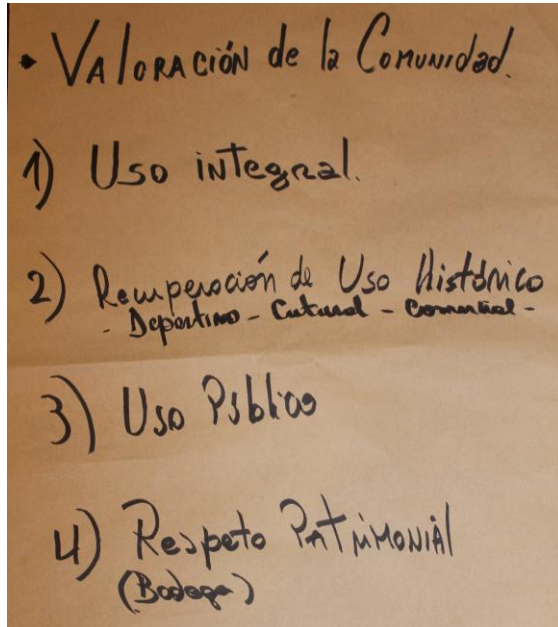 • VAlORACIÓN de la Comunidad.
1) Uso integral.
2) Recuperación de Uso Histórico
- Deportivo - Cutural - Comercial -
3) Uso Público
4) Respeto PATRIMONIAl
(Bodega)